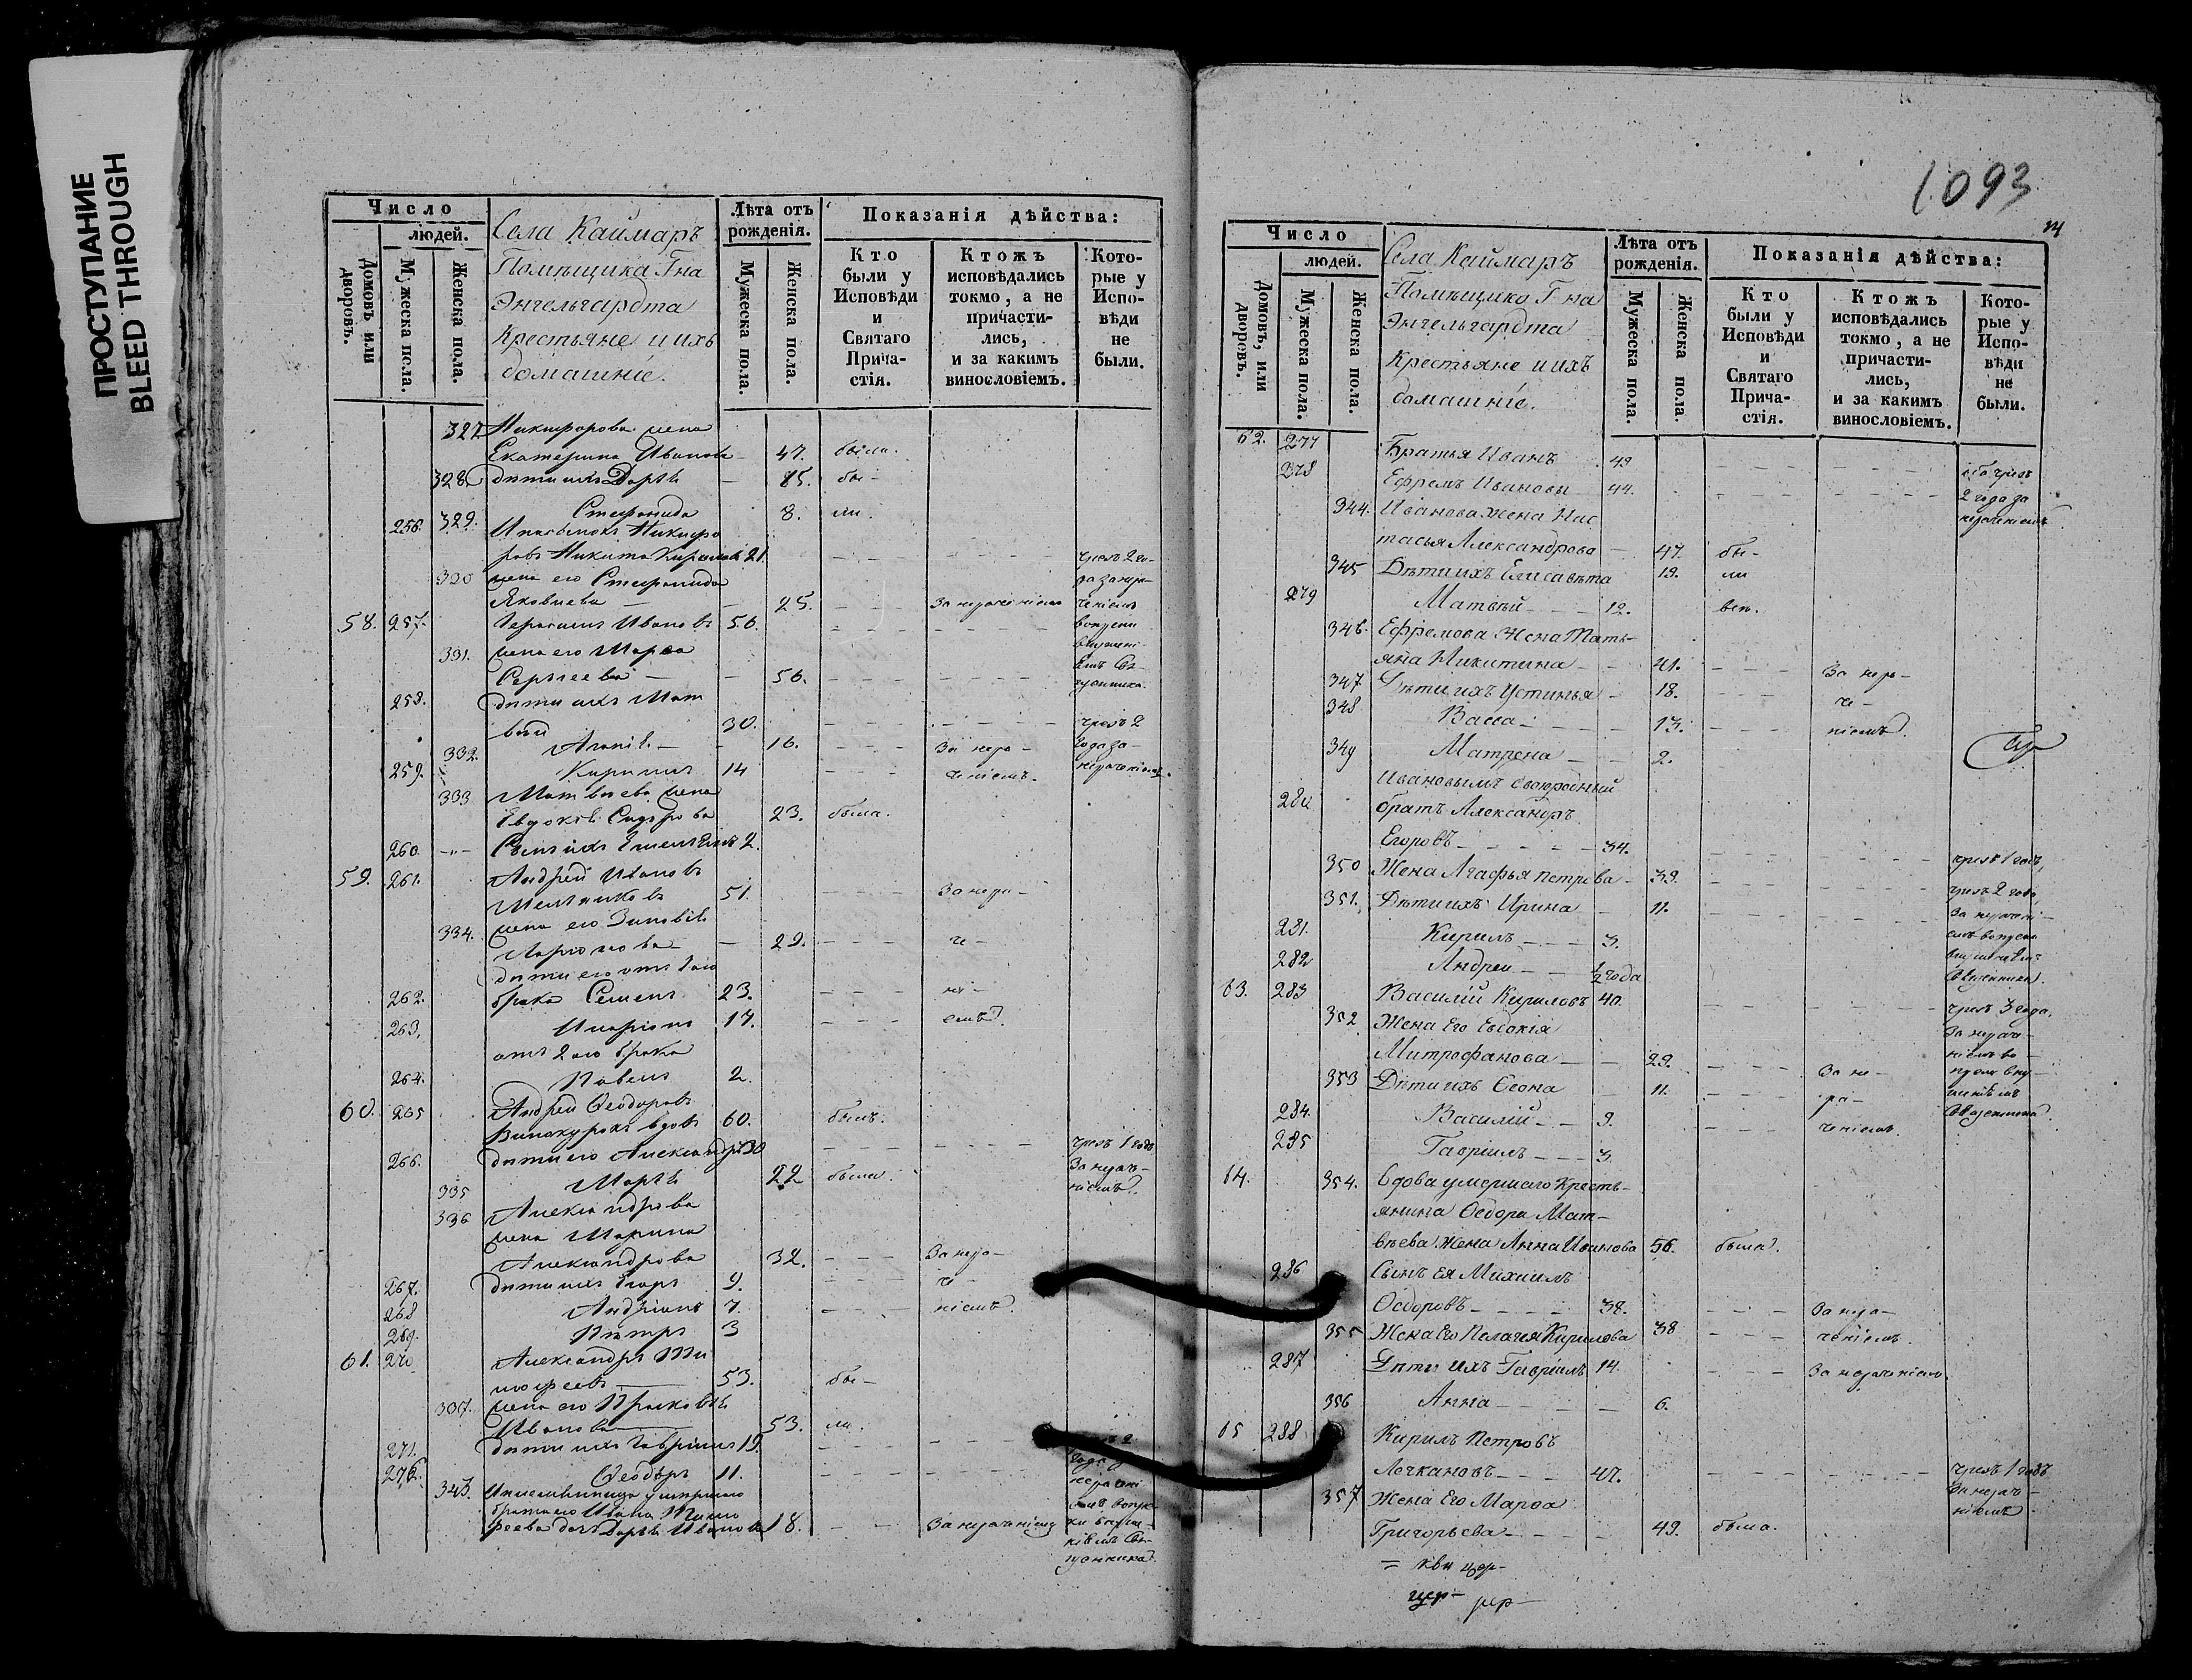 ПРОСТУПАНИЕ
BLEED THROUGH
Число
людей.
Домовъ или дворовъ.
Мужеска пола.
Женска пола.
Села Каймаръ
Помѣщика Гна
Энгельгардта
Крестьяне и ихъ
домашніе.
Лѣта отъ рожденія.
Мужеска пола.
Женска пола.
Показанія дѣйства:
Кто были у Исповѣди и Святаго Прича-стія.
Ктожъ исповѣдались токмо, а не причасти-лись, и за какимъ винословіемъ.
Кото-рые у Испо-вѣди не были.
327 Никифорова жена
Екатерина Иванова 47. были.
328 дѣти ихъ Дарья 15. бы-
329. Степанида 8. ли.
256. Никифо
ровъ Никита 21. чрезъ 2 го-
330 жена его Степанида да за нера-
Яковлева 25. За нераченіемъ ченіемъ
58. 257. Герасимъ Ивановъ 56.
331. жена его Марѳа
Сергеева 56.
258. дѣти ихъ Мат
вѣй 30. чрезъ 2
332. Агапія 16. За нера- года за
259. Кирилъ 14 ченіемъ. нераченіемъ.
333 Матвѣева жена
Евдокія Сидорова 23. была.
260. Сынъ ихъ 2.
59. 261. Андрей Ивановъ
Мельниковъ 51. За нера-
334. жена его Зиновія
Ларіонова 29. че-
дѣти его отъ 1го
262. брака Семенъ 23. ні-
263. Иларіонъ 17. емъ.
отъ 2го брака
264. Павелъ 2.
60. 265 Андрей Ѳеодоровъ
вдовъ 60. былъ.
266. дѣти его Александръ 30 чрезъ 1 годъ
335 Марья 22 была. За нерач-
336 Александрова ніемъ.
жена Марина
Александрова 32. За нера-
267. дѣти ихъ Егоръ 9. че-
268 Андріанъ 7. ніемъ.
269. Петръ 3
61. 270 Александръ Ти
моѳеевъ 53. бы-
337. жена его Прасковья
Ивановна 53. ли.
271. дѣти ихъ Гавріилъ 19.
272. Ѳеодоръ 11.
343. умершаго
брата его Ивана Тимо
феева дочь Дарья Иванова 18. За нераченіемъ
1093
Число
людей.
Домовъ, или дворовъ.
Мужеска пола.
Женска пола.
Села Каймаръ
Помѣщика Гна
Энгельгардта
Крестьяне и ихъ
домашніе.
Лѣта отъ рожденія.
Мужеска пола
Женска пола.
Показанія дѣйства:
Кто были у Исповѣди и Святаго Прича-стія.
Ктожъ исповѣдались токмо, а не причасти-лись, и за какимъ винословіемъ.
Кото-рые у Испо-вѣди не были.
62. 277 Братья Иванъ 49
278 Ефремъ Ивановы 44. 2 года за
344. Иванова жена Нас нераченіемъ
тасья Александрова 47. бы-
345 Дѣти ихъ Елисавѣта 19. ли
279 Матвѣй 12. всѣ.
346. Ефремова жена Тать-
яна Никитина 41. За нера-
347 Дѣти ихъ Устинья 18. че-
348 Васса 13. ніемъ.
349 Матрена 2.
Ивановымъ двоюродный
280 братъ Александръ
Егоровъ 34. чрезъ 1 годъ,
350 Жена Агафья Петрова 39. чрезъ 2 года
351. Дѣти ихъ Ирина 11. За нерачені-
281. Кирилъ 3.
282 Андрей 1/2 года
63. 283 Василій Кириловъ 40. чрезъ 3 года.
352 Жена Его Евдокія
Митрофанова 29. За не-
353 Дѣти ихъ Ѳеона 11. ра-
284. Василій 9. ченіемъ.
285 Гавріилъ 3
64. 354. Вдова умершаго Кресть-
янина Ѳедора Мат-
вѣева жена Анна Иванова 56. была.
286 Сынъ ея Михаилъ
Ѳедоровъ 38. За нера-
355 Жена Его Пелагея Кирилова 38 ченіемъ.
287 Дѣти ихъ Гавріилъ 14. За нераченіемъ.
356 Анна 6.
65 288 Кирилъ Петровъ
Лечкановъ 47. чрезъ 1 годъ
357 Жена Его Марѳа за нерач-
Григорьева 49. была. ніемъ